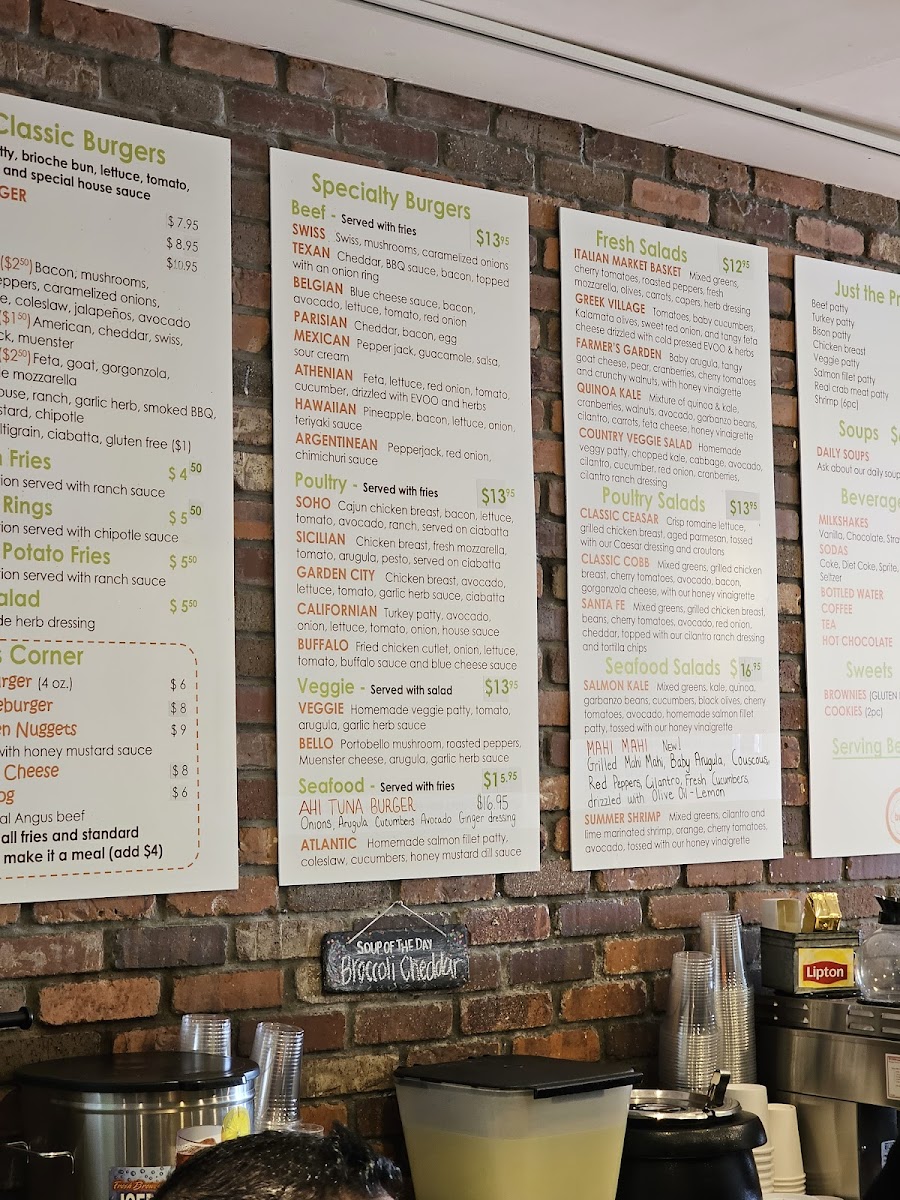 Classic Burgers
tty, brioche bun, lettuce, tomato,
and special house sauce
GER
$7.95
$8.95
$10.95
($2⁵⁰) Bacon, mushrooms,
eppers, caramelized onions,
e, coleslaw, jalapeños, avocado
($1⁵⁰) American, cheddar, swiss,
ck, muenster
($2⁵⁰) Feta, goat, gorgonzola,
le mozzarella
ouse, ranch, garlic herb, smoked BBQ,
stard, chipotle
ltigrain, ciabatta, gluten free ($1)
n Fries $4⁵⁰
tion served with ranch sauce
Rings $5⁵⁰
tion served with chipotle sauce
Potato Fries $5⁵⁰
tion served with ranch sauce
alad $5⁵⁰
de herb dressing
s Corner
urger (4 oz.) $6
eburger $8
en Nuggets $9
with honey mustard sauce
Cheese $8
og $6
al Angus beef
all fries and standard
make it a meal (add $4)
Specialty Burgers
Beef - Served with fries $13⁹⁵
SWISS Swiss, mushrooms, caramelized onions
TEXAN Cheddar, BBQ sauce, bacon, topped
with an onion ring
BELGIAN Blue cheese sauce, bacon,
avocado, lettuce, tomato, red onion
PARISIAN Cheddar, bacon, egg
MEXICAN Pepper jack, guacamole, salsa,
sour cream
ATHENIAN Feta, lettuce, red onion, tomato,
cucumber, drizzled with EVOO and herbs
HAWAIIAN Pineapple, bacon, lettuce, onion,
teriyaki sauce
ARGENTINEAN Pepperjack, red onion,
chimichuri sauce
Poultry - Served with fries $13⁹⁵
SOHO Cajun chicken breast, bacon, lettuce,
tomato, avocado, ranch, served on ciabatta
SICILIAN Chicken breast, fresh mozzarella,
tomato, arugula, pesto, served on ciabatta
GARDEN CITY Chicken breast, avocado,
lettuce, tomato, garlic herb sauce, ciabatta
CALIFORNIAN Turkey patty, avocado,
onion, lettuce, tomato, onion, house sauce
BUFFALO Fried chicken cutlet, onion, lettuce,
tomato, buffalo sauce and blue cheese sauce
Veggie - Served with salad $13⁹⁵
VEGGIE Homemade veggie patty, tomato,
arugula, garlic herb sauce
BELLO Portobello mushroom, roasted peppers,
Muenster cheese, arugula, garlic herb sauce
Seafood - Served with fries $15.95
AHI TUNA BURGER $16.95
Onions, Arugula Cucumbers Avocado Ginger dressing
ATLANTIC Homemade salmon fillet patty,
coleslaw, cucumbers, honey mustard dill sauce
Fresh Salads $12⁹⁵
ITALIAN MARKET BASKET Mixed greens,
cherry tomatoes, roasted peppers, fresh
mozzarella, olives, carrots, capers, herb dressing
GREEK VILLAGE Tomatoes, baby cucumbers,
Kalamata olives, sweet red onion, and tangy feta
cheese drizzled with cold pressed EVOO & herbs
FARMER'S GARDEN Baby arugula, tangy
goat cheese, pear, cranberries, cherry tomatoes
and crunchy walnuts, with honey vinaigrette
QUINOA KALE Mixture of quinoa & kale,
cranberries, walnuts, avocado, garbanzo beans,
cilantro, carrots, feta cheese, honey vinaigrette
COUNTRY VEGGIE SALAD Homemade
veggy patty, chopped kale, cabbage, avocado,
cilantro, cucumber, red onion, cranberries,
cilantro ranch dressing
Poultry Salads $13⁹⁵
CLASSIC CEASAR Crisp romaine lettuce,
grilled chicken breast, aged parmesan, tossed
with our Caesar dressing and croutons
CLASSIC COBB Mixed greens, grilled chicken
breast, cherry tomatoes, avocado, bacon,
gorgonzola cheese, with our honey vinaigrette
SANTA FE Mixed greens, grilled chicken breast,
beans, cherry tomatoes, avocado, red onion,
cheddar, topped with our cilantro ranch dressing
and tortilla chips
Seafood Salads $16.⁹⁵
SALMON KALE Mixed greens, kale, quinoa,
garbanzo beans, cucumbers, black olives, cherry
tomatoes, avocado, homemade salmon filet
patty, tossed with honey vinaigrette
MAHI MAHI New!
Grilled Mahi Mahi, Baby Arugula, Couscous,
Red Peppers, Cilantro, Fresh Cucumbers,
drizzled with Olive Oil-Lemon
SUMMER SHRIMP Mixed greens, cilantro and
lime marinated shrimp, orange, cherry tomatoes,
avocado, tossed with honey vinaigrette
Just the Pr
Beef patty
Turkey patty
Bison patty
Chicken breast
Veggie patty
Salmon fillet patty
Real crab meat patty
Shrimp (6pc)
Soups $
DAILY SOUPS
Ask about our daily soup
Beverage
MILKSHAKES
Vanilla, Chocolate, Stra
SODAS
Coke, Diet Coke, Sprite,
Seltzer
BOTTLED WATER
COFFEE
TEA
HOT CHOCOLATE
Sweets
BROWNIES (GLUTEN
COOKIES (2pc)
Serving Be
SOUP OF THE DAY
Broccoli Cheddar
Lipton
Fresh Brewed
ICED